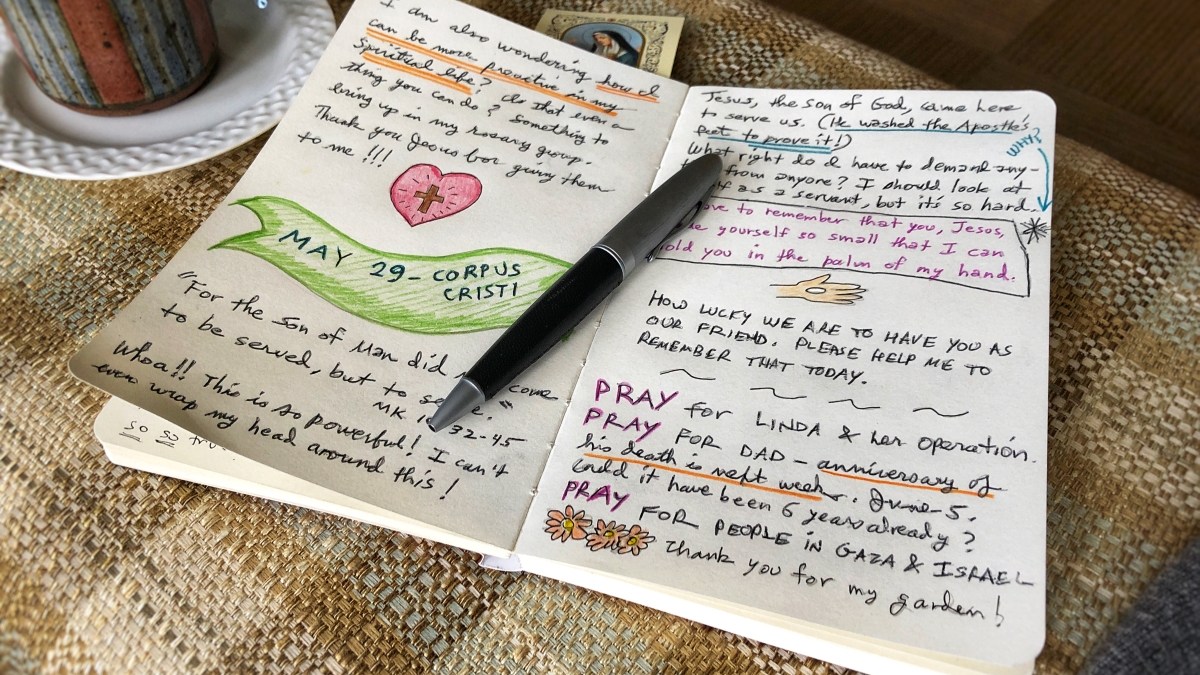 I am also wondering how I
can be more proactive in my
spiritual life? Is that even a
thing you can do? Something to
bring up in my rosary group.
Thank you Jesus for giving them
to me!!!
MAY 29 - CORPUS
CRISTI
"For the son of Man did come
to be served, but to se e."
MK 1 32-45
Whoa!! This is so powerful! I can't
even wrap my head around this!
so so tru
Jesus, the son of God, came here
to serve us. (He washed the Apostle's
feet to prove it!)
WHY?
What right do I have to demand any-
from anyone? I should look at
as a servant, but it's so hard.
ve to remember that you, Jesus,
e yourself so small that I can
old you in the palm of my hand.
HOW LUCKY WE ARE TO HAVE YOU AS
OUR FRIEND. PLEASE HELP ME TO
REMEMBER THAT TODAY.
PRAY for LINDA & her operation.
PRAY FOR DAD - anniversary of
his death is next week. June 5.
Could it have been 6 years already?
PRAY FOR PEOPLE IN GAZA & ISRAEL
Thank you for my garden!